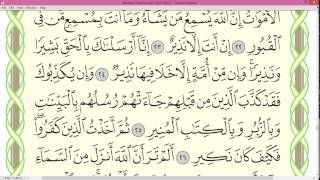 ٱلۡأَمۡوَٰتُۚ إِنَّ ٱللَّهَ يُسۡمِعُ مَن يَشَآءُۖ وَمَآ أَنتَ بِمُسۡمِعٖ مَّن فِي
ٱلۡقُبُورِ ٢٢ إِنۡ أَنتَ إِلَّا نَذِيرٌ ٢٣ إِنَّآ أَرۡسَلۡنَٰكَ بِٱلۡحَقِّ بَشِيرٗا
وَنَذِيرٗاۚ وَإِن مِّنۡ أُمَّةٍ إِلَّا خَلَا فِيهَا نَذِيرٞ ٢٤ وَإِن يُكَذِّبُوكَ
فَقَدۡ كَذَّبَ ٱلَّذِينَ مِن قَبۡلِهِمۡ جَآءَتۡهُمۡ رُسُلُهُم بِٱلۡبَيِّنَٰتِ
وَبِٱلزُّبُرِ وَبِٱلۡكِتَٰبِ ٱلۡمُنِيرِ ٢٥ ثُمَّ أَخَذۡتُ ٱلَّذِينَ كَفَرُواْۖ
فَكَيۡفَ كَانَ نَكِيرِ ٢٦ أَلَمۡ تَرَ أَنَّ ٱللَّهَ أَنزَلَ مِنَ ٱلسَّمَآءِ